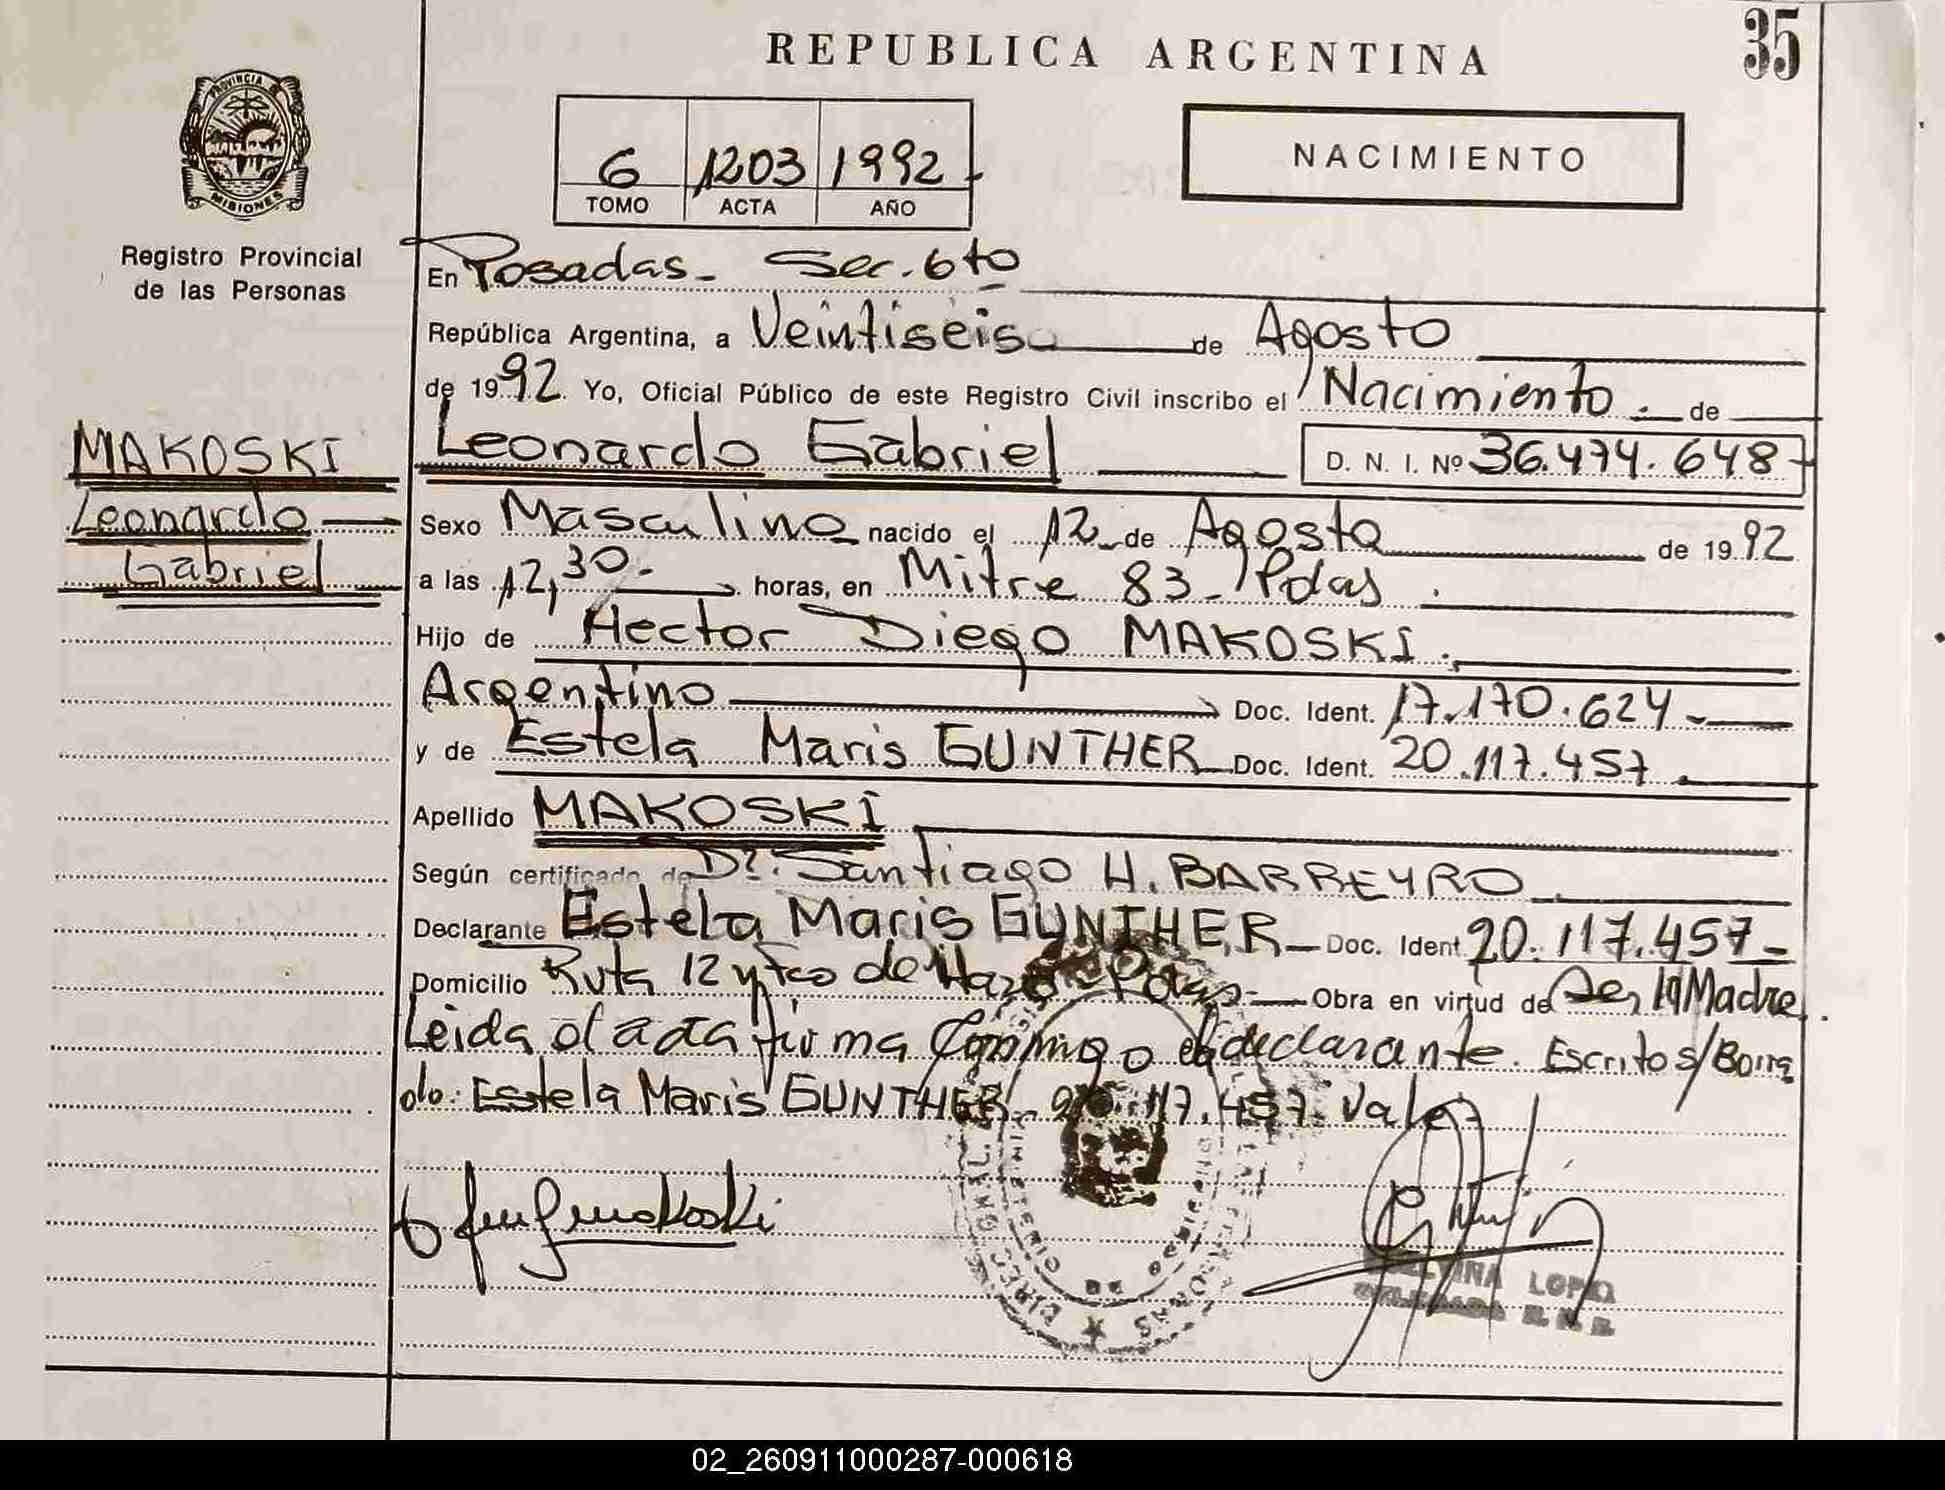 REPUBLICA ARGENTINA
35
PROVINCIA DE
MISIONES
Registro Provincial
de las Personas
6 1203 1992
TOMO ACTA AÑO
NACIMIENTO
En Posadas - Sec. 6to
República Argentina, a Veintiseis de Agosto
de 1992. Yo, Oficial Público de este Registro Civil inscribo el Nacimiento. de
MAKOSKI
Leonardo
Gabriel
Leonardo Gabriel D. N. I. Nº 36.474.648
Sexo Masculino nacido el 12 de Agosto de 1992
a las 12,30. horas, en Mitre 83 - Pdas.
Hijo de Hector Diego MAKOSKI.
Argentino Doc. Ident. 17.170.624
y de Estela Maris GUNTHER Doc. Ident. 20.117.457
Apellido MAKOSKI
Según certificado de Dr. Santiago H. BARREYRO
Declarante Estela Maris GUNTHER - Doc. Ident 20.117.457 -
Domicilio Ruta 12 y de Pdas - Obra en virtud de la Madre.
Leida el acta firma conmigo declarante. Escrito s/Borra
do: Estela Maris GUNTHER - 20.117.457. Vale
LOPEZ
02_260911000287-000618